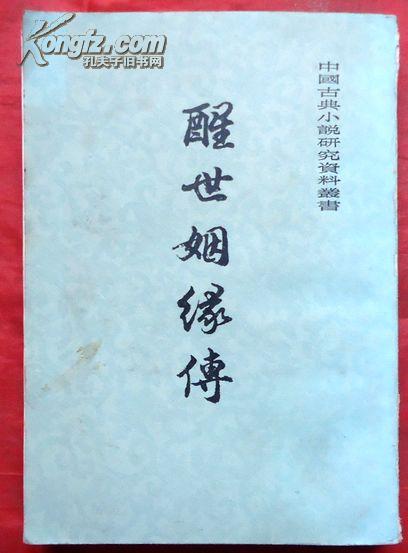 Kongfz.com
孔夫子旧书网
中國古典小説研究資料叢書
醒世姻緣傳